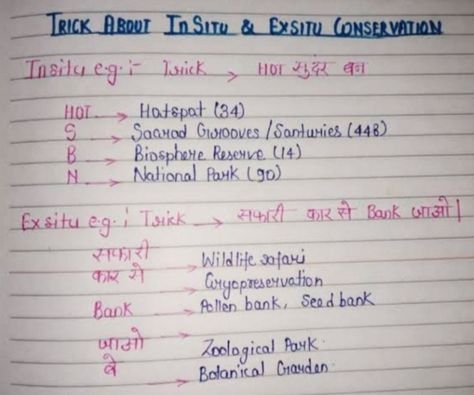 TRICK ABOUT INSITU & EXSITU CONSERVATION
Insitu e.g :- Trick → HOT सुंदर बन
HOT → Hotspat (34)
S → Saarod Girooves / Santuries (448)
B → Biosphere Reserve (14)
N → National Park (90)
Exsitu e.g. ; Trick → सफारी कार से Bank जाओ|
सफारी → Wildlife safari
कार से → Cryopreservation
Bank → Pollen bank, Seed bank
जाओ → Zoological Park.
बे → Botanical Garden.